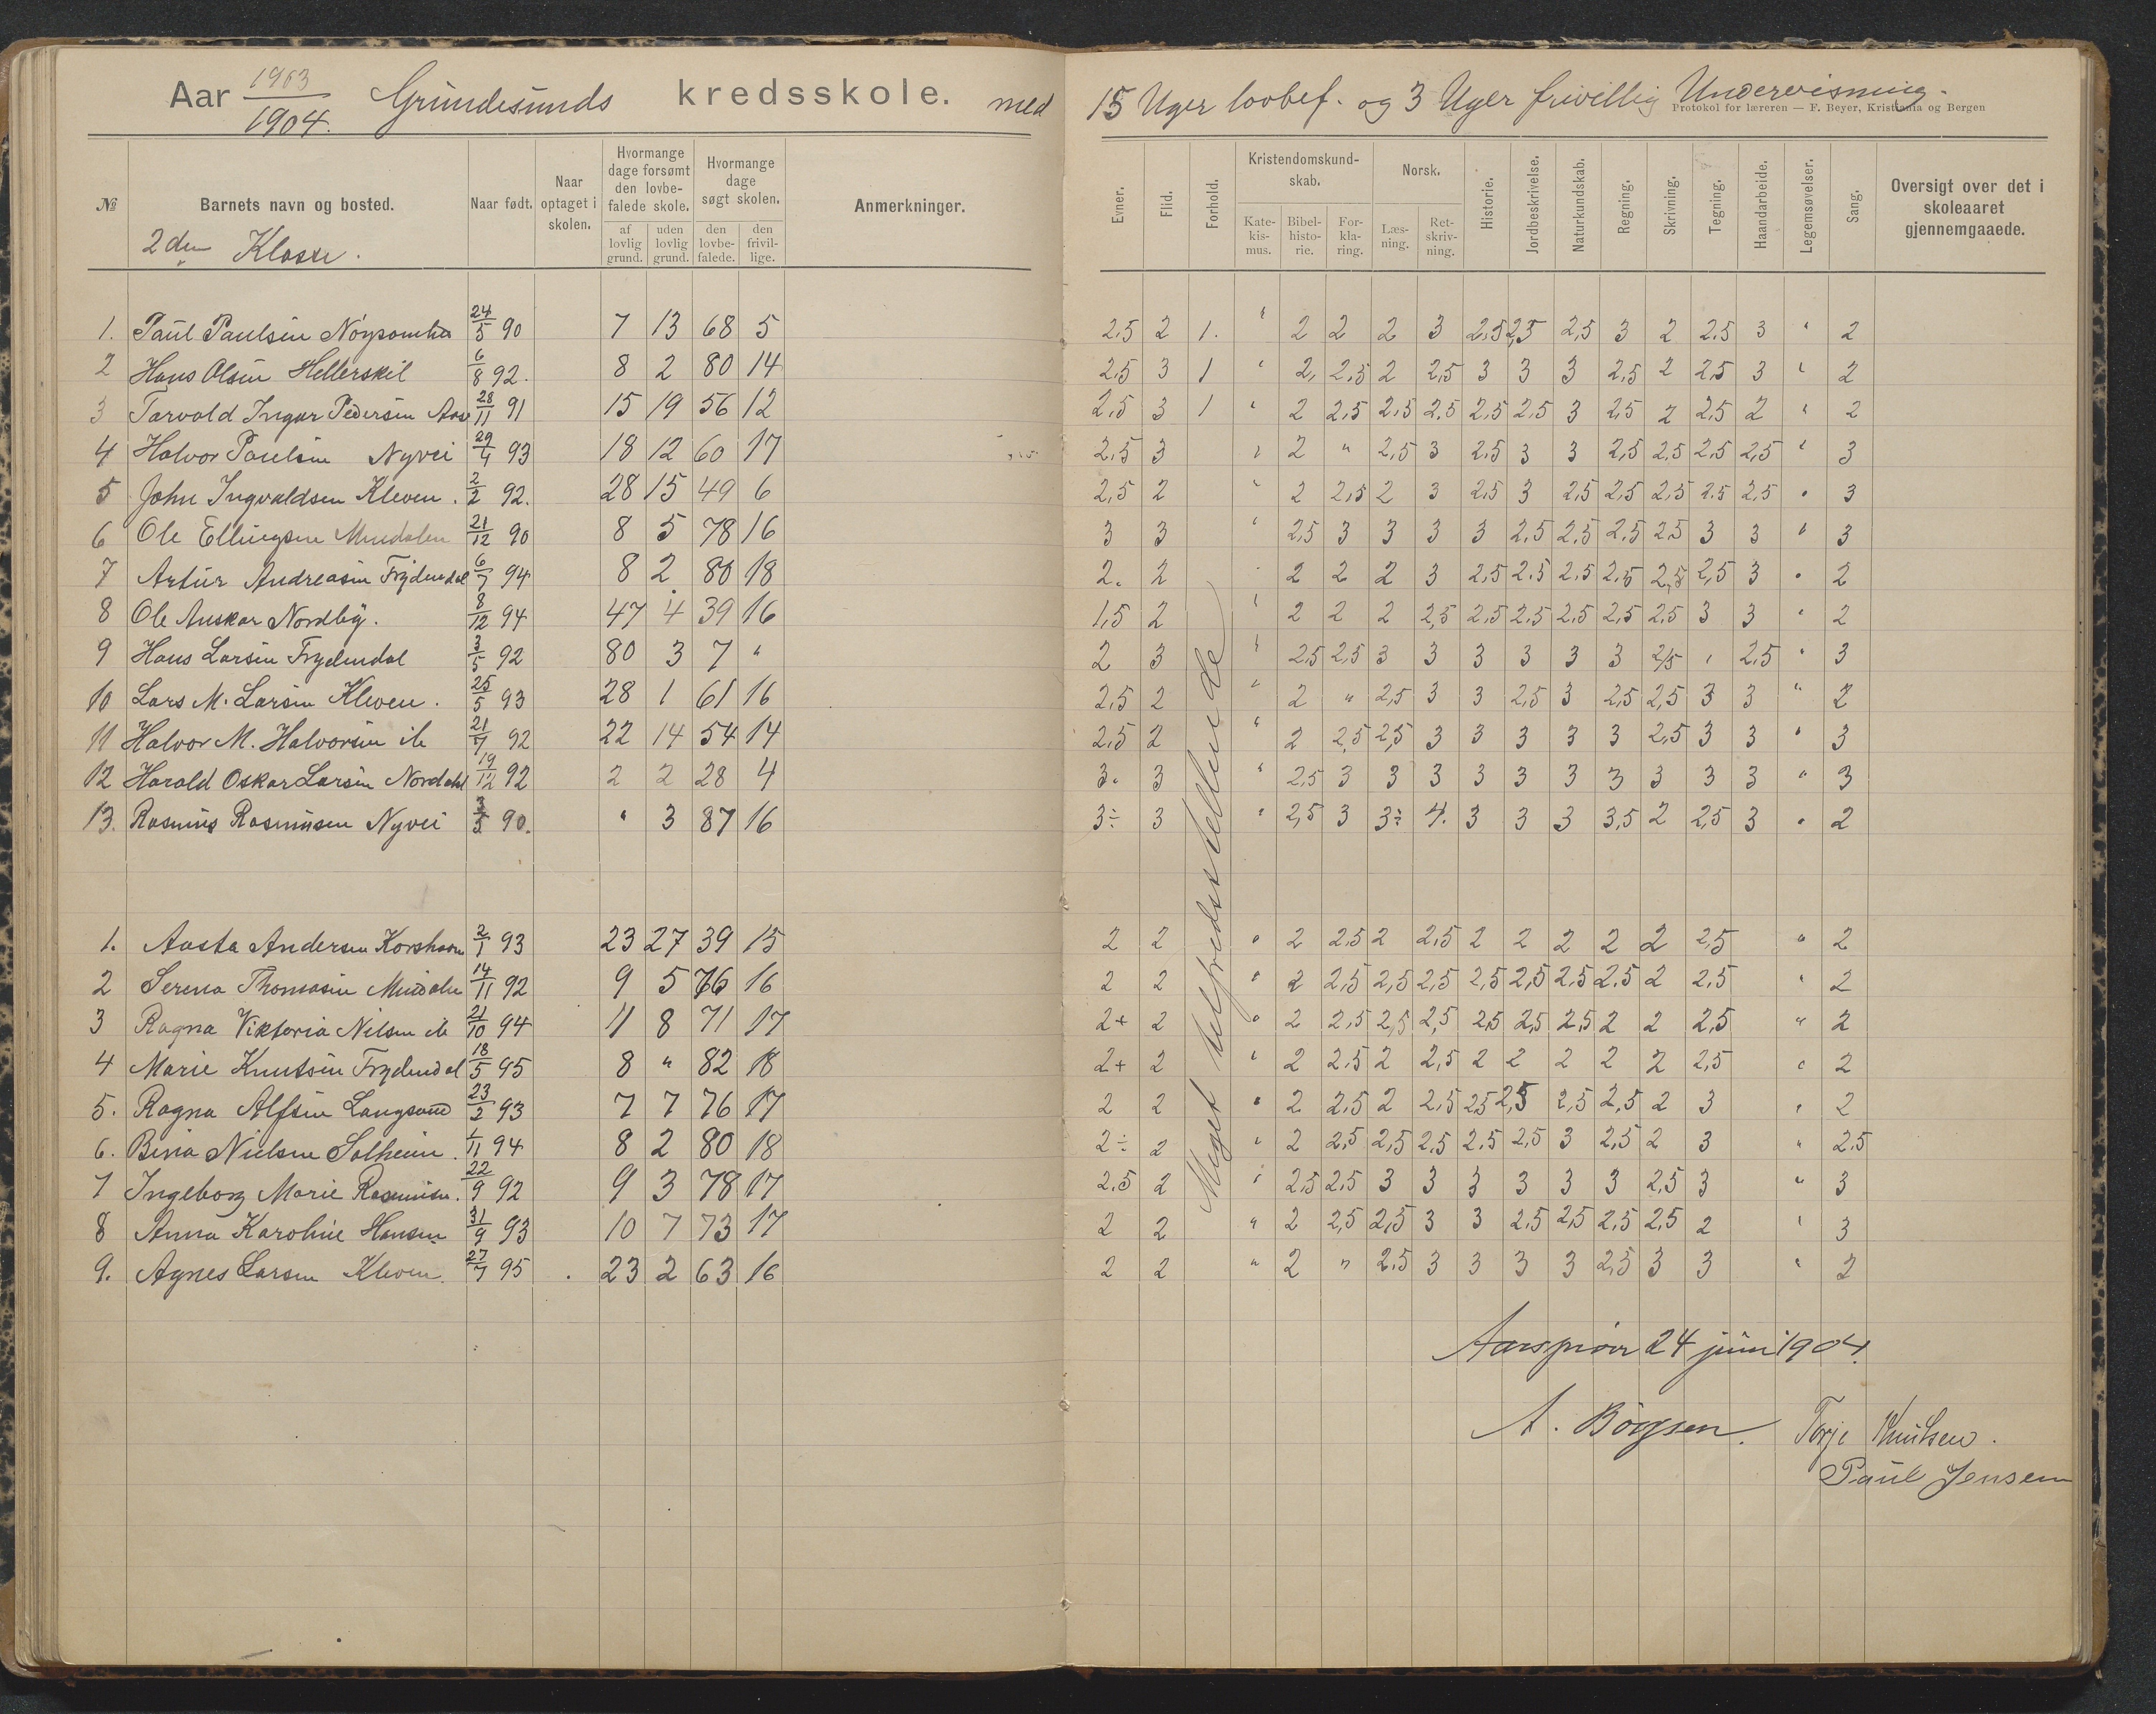 Aar 1903/1904. Grundesunds kredsskole. med 15 Uger lovbef. og 3 Uger frivillig Undervisning.
Protokol for læreren — F. Beyer, Kristiania og Bergen
№ Barnets navn og bosted. Naar født. Naar optaget i skolen. Hvormange dage forsømt den lovbefalede skole. af lovlig grund. uden lovlig grund. Hvormange dage søgt skolen. den lovbefalede. den frivillige. Anmerkninger. Evner. Flid. Forhold. Kristendomskundskab. Katekismus. Bibelhistorie. Forklaring. Norsk. Læsning. Retskrivning. Historie. Jordbeskrivelse. Naturkundskab. Regning. Skrivning. Tegning. Haandarbeide. Legemsøvelser. Sang. Oversigt over det i skoleaaret gjennemgaaede.
2den Klasse.
1. Paul Paulsen 24/5 90 7 13 68 5 2,5 2 1. " 2 2 2 3 2,5 2,5 2,5 3 2 2,5 3 " 2
2 Hans Olsen Hellerskil 6/8 92. 8 2 80 14 2,5 3 1 " 2, 2,5 2 2,5 3 3 3 2,5 2 2,5 3 " 2
3 Tarvald Ingvar Pedersen Aas 28/11 91 15 19 56 12 2,5 3 1 " 2 2,5 2,5 2,5 2,5 2,5 3 2,5 2 2,5 2 " 2
4 Halvor Paulsen Nyvei 29/4 93 18 12 60 17 2,5 3 " 2 " 2,5 3 2,5 3 3 2,5 2,5 2,5 2,5 " 3
5 John Ingvaldsen Kleven. 2/2 92. 28 15 49 6 2,5 2 " 2 2,5 2 3 2,5 3 2,5 2,5 2,5 2,5 2,5 " 3
6 Ole Ellingsen Mindalen 21/12 90 8 5 78 16 3 3 " 2,5 3 3 3 3 2,5 2,5 2,5 2,5 3 3 " 3
7 Artur Andreasen Frydendal 6/7 94 8 2 80 18 2. 2 2 2 2 3 2,5 2,5 2,5 2,5 2,5 2,5 3 " 2
8 Ole Anskar Nordby. 8/12 94 47 4 39 16 1,5 2 " 2 2 2 2,5 2,5 2,5 2,5 2,5 2,5 3 3 " 2
9 Hans Larsen Frydendal 3/5 92 80 3 7 " 2 3 " 2,5 2,5 3 3 3 3 3 3 2,5 " 2,5 " 3
10 Lars M. Larsen Kleven. 25/5 93 28 1 61 16 2,5 2 " 2 " 2,5 3 3 2,5 3 2,5 2,5 3 3 " 2
11 Halvor M. Halvorsen ib 21/7 92 22 14 54 14 2,5 2 " 2 2,5 2,5 3 3 3 3 3 2,5 3 3 " 3
12 Harald Oskar Larsen Nordahl 19/12 92 2 2 28 4 3. 3 " 2,5 3 3 3 3 3 3 3 3 3 3 " 3
13. Rasmus Rasmusen Nyvei 3/5 90. " 3 87 16 3÷ 3 " 2,5 3 3÷ 4. 3 3 3 3,5 2 2,5 3 " 2
1. Aasta Andersen Korshavn 2/1 93 23 27 39 15 2 2 " 2 2,5 2 2,5 2 2 2 2 2 2,5 " 2
2 Serena Thomasen Mindalen 14/11 92 9 5 76 16 2 2 " 2 2,5 2,5 2,5 2,5 2,5 2,5 2,5 2 2,5 " 2
3 Ragna Viktoria Nilsen ib 21/10 94 11 8 71 17 2+ 2 " 2 2,5 2,5 2,5 2,5 2,5 2,5 2 2 2,5 " 2
4 Marie Knutsen Frydendal 18/5 95 8 " 82 18 2+ 2 " 2 2,5 2 2,5 2 2 2 2 2 2,5 " 2
5. Ragna Alfsen Langsund 23/2 93 7 7 76 17 2 2 " 2 2,5 2 2,5 2,5 2,5 2,5 2,5 2 3 " 2
6. Bina Nielsen Solheim. 1/11 94 8 2 80 18 2÷ 2 " 2 2,5 2,5 2,5 2,5 2,5 3 2,5 2 3 " 2,5
7 Ingeborg Marie Rasmusen. 22/9 92 9 3 78 17 2,5 2 " 2,5 2,5 3 3 3 3 3 3 2,5 3 " 3
8 Anna Karoline Hansen 31/9 93 10 7 73 17 2 2 " 2 2,5 2,5 3 3 2,5 2,5 2,5 2,5 2 " 3
9. Agnes Larsen Kleven. 27/7 95 23 2 63 16 2 2 " 2 " 2,5 3 3 3 3 2,5 3 3 " 2
Meget tilfredsstillende
Aarsprøve 24 juni 1904.
A. Børgsen. Torje Knutsen.
Paul Jensen